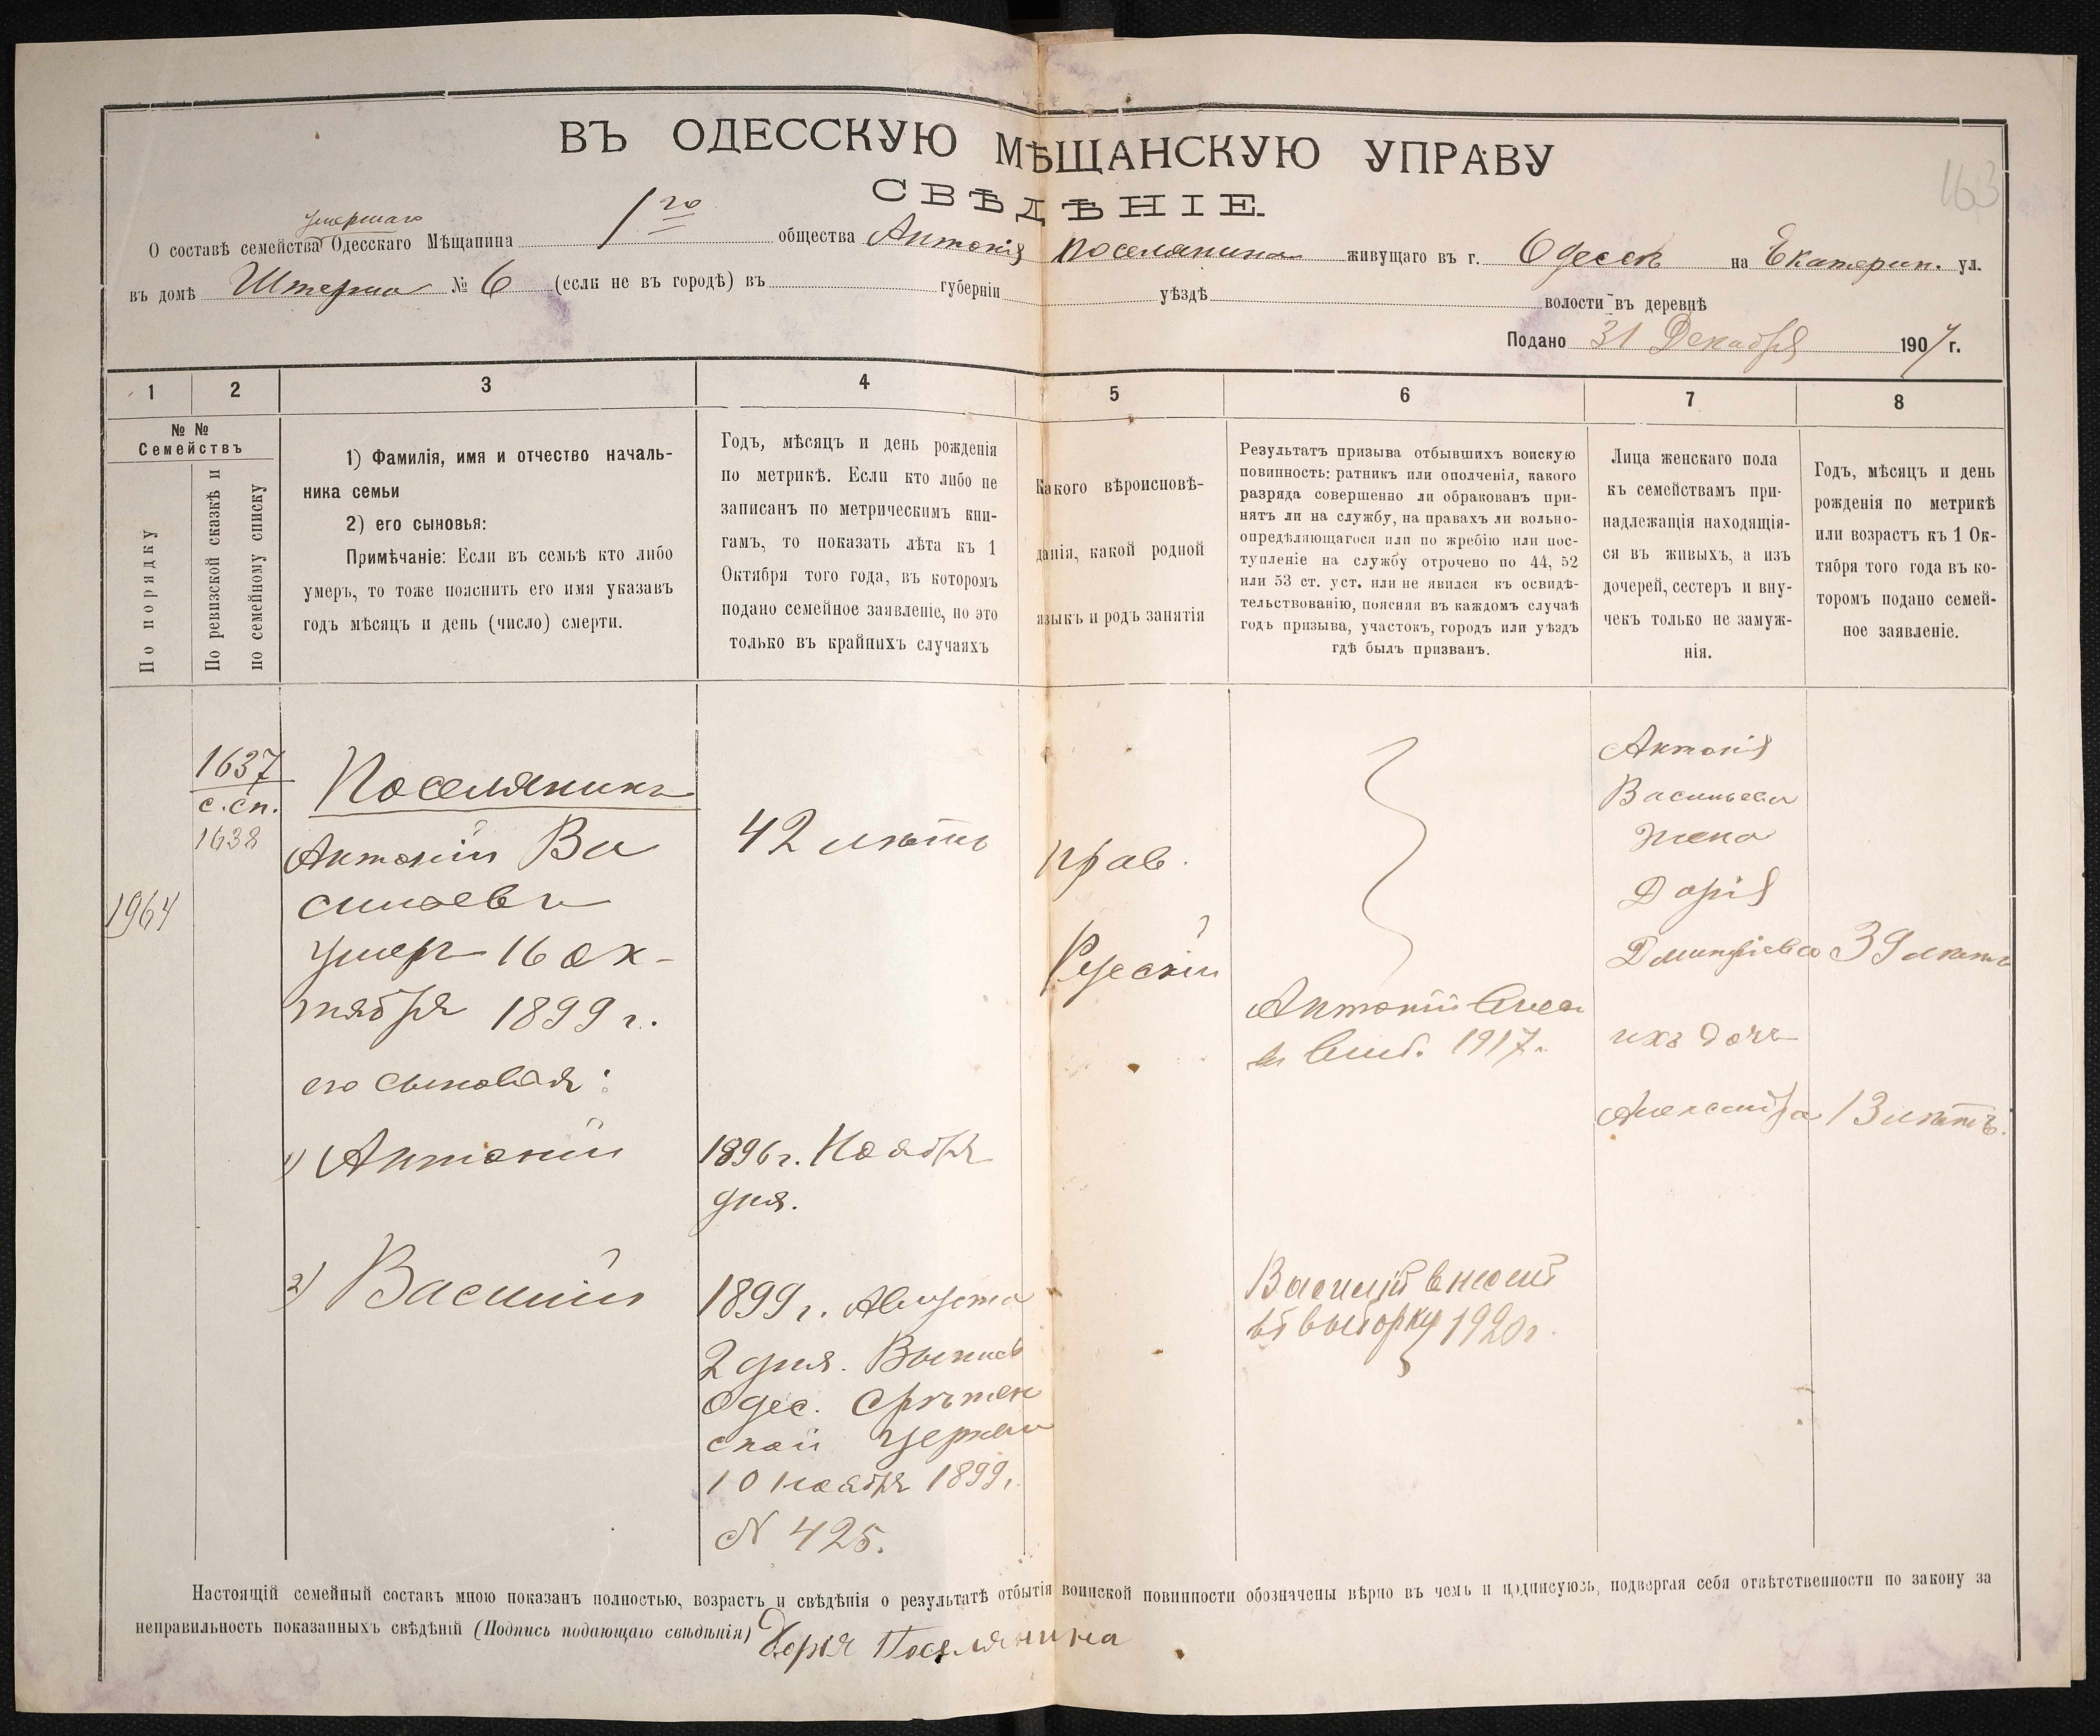 ВЪ ОДЕССКУЮ МѢЩАНСКУЮ УПРАВУ
163
СВѢДѢНІЕ.
умершаго
О составѣ семейства Одесскаго Мѣщанина 1го общества Антонія Поселянина живущаго въ г. Одессѣ на Екатерин. ул.
въ домѣ Штерна № 6 (если не въ городѣ) въ губерніи уѣздѣ волости въ деревнѣ
Подано 31 Декабря 1907 г.
1 2 3 4 5 6 7 8
№ №
Семействъ
По порядку
По ревизской сказкѣ и
по семейному списку
1) Фамилія, имя и отчество началь-
ника семьи
2) его сыновья:
Примѣчаніе: Если въ семьѣ кто либо
умеръ, то тоже пояснить его имя указавъ
годъ мѣсяцъ и день (число) смерти.
Годъ, мѣсяцъ и день рожденія
по метрикѣ. Если кто либо не
записанъ по метрическимъ кни-
гамъ, то показать лѣта къ 1
Октября того года, въ которомъ
подано семейное заявленіе, но это
только въ крайнихъ случаяхъ
Какого вѣроисповѣ-
данія, какой родной
языкъ и родъ занятія
Результатъ призыва отбывшихъ воискую
повинность: ратникъ или ополченія, какого
разряда совершенно ли обракованъ при-
нятъ ли на службу, на правахъ ли вольно-
опредѣляющагося или по жребію или пос-
тупленіе на службу отрочено по 44, 52
или 53 ст. уст. или не явился къ освидѣ-
тельствованію, поясняя въ каждомъ случаѣ
годъ призыва, участокъ, городъ или уѣздъ
гдѣ былъ призванъ.
Лица женскаго пола
къ семействамъ при-
надлежащія находящія-
ся въ живыхъ, а изъ
дочерей, сестеръ и вну-
чекъ только не замуж-
нія.
Годъ, мѣсяцъ и день
рожденія по метрикѣ
или возрастъ къ 1 Ок-
тября того года въ ко-
торомъ подано семей-
ное заявленіе.
1964
1637
с.сп.
1638
Поселянинъ
Антоній Ва
сильевъ
умеръ 16 ок-
тября 1899 г.
его сыновья:
1) Антоній
2) Василій
42 лѣтъ
1896 г. Ноября
дня.
1899 г. Августа
2 дня. Выпись
Одес. Срѣтен
ской церкви
10 ноября 1899 г.
N 425.
прав.
Русскій
Антоній
1917 г.
Василій внесенъ
въ выборку 1920 г.
Антонія
Васильева
жена
Дарія
Дмитріева 39 лѣтъ
ихъ дочь
Александра 13 лѣтъ.
Настоящій семейный составъ мною показанъ полностью, возрастъ и свѣдѣнія о результатѣ отбытія воинской повинности обозначены вѣрно въ чемъ и подписуюсь, подвергая себя отвѣтственности по закону за
неправильность показанныхъ свѣдѣній (Подпись подающаго свѣдѣнія) Дарія Поселянина